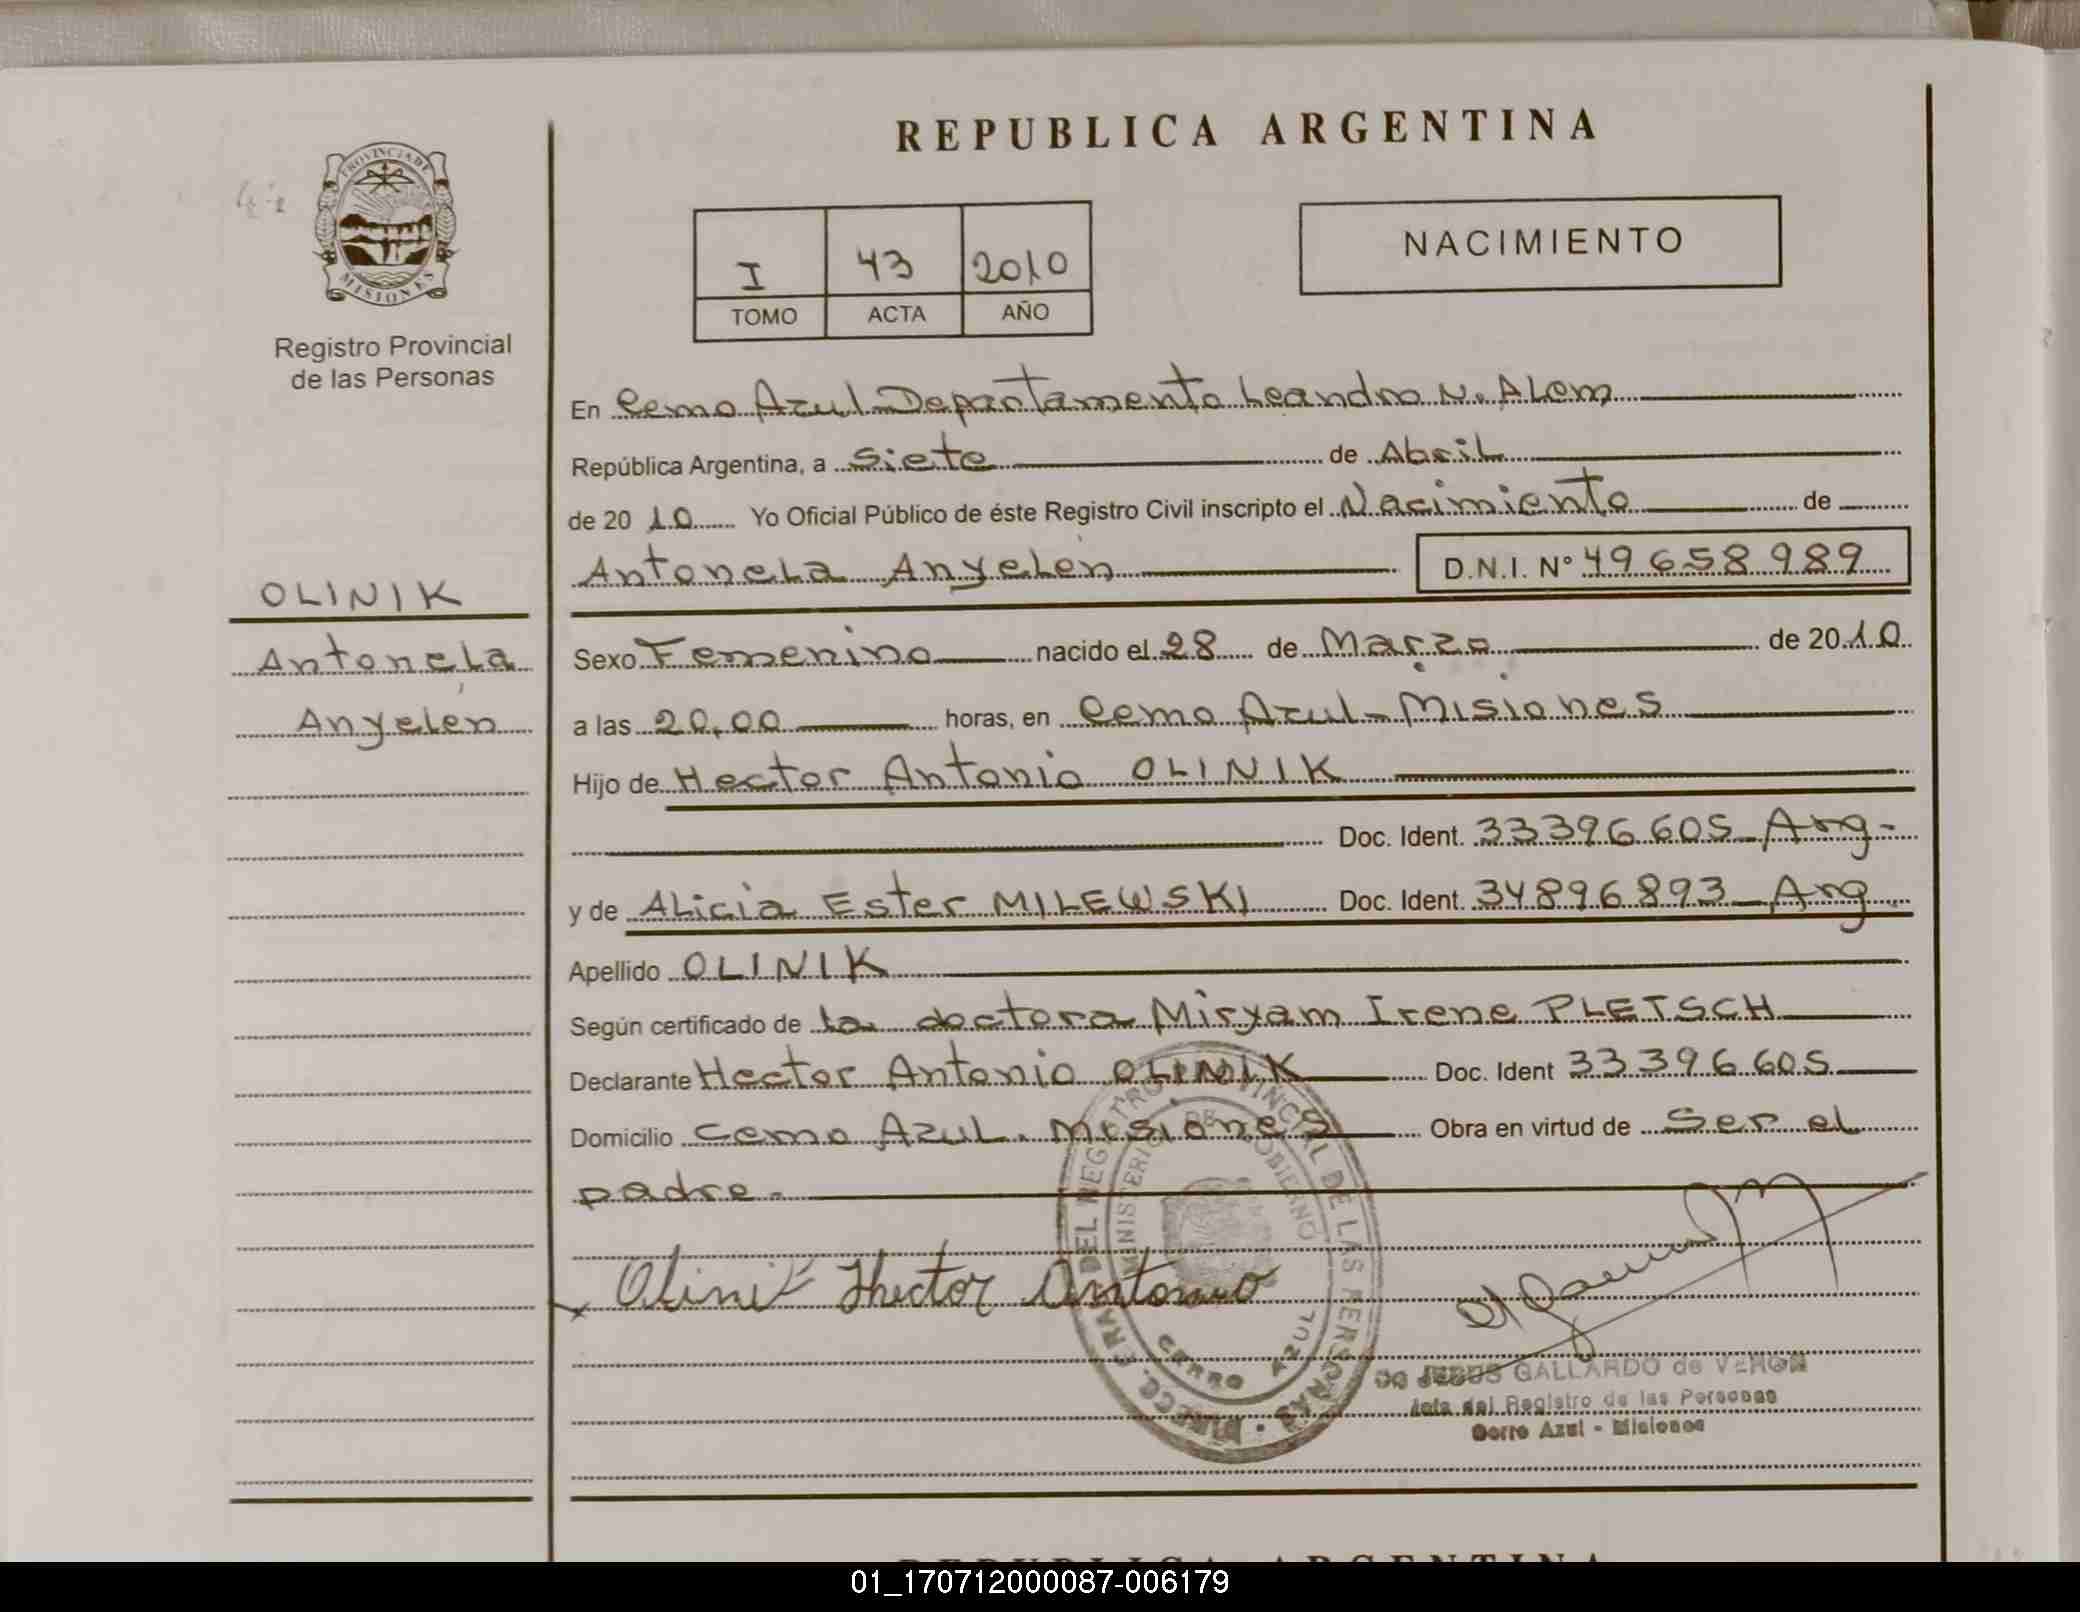 REPUBLICA ARGENTINA
PROVINCIA DE
MISIONES
Registro Provincial
de las Personas
I 43 2010
TOMO ACTA AÑO
NACIMIENTO
En Cerro Azul Departamento Leandro N. Alem
República Argentina, a siete de Abril
de 2010 Yo Oficial Público de éste Registro Civil inscripto el Nacimiento de
Antonela Anyelén D.N.I. Nº 49658989
OLINIK
Antonela
Anyelén
Sexo Femenino nacido el 28 de Marzo de 2010
a las 20,00 horas, en Cerro Azul - Misiones
Hijo de Hector Antonio OLINIK
Doc. Ident. 33396605 - Arg-
y de Alicia Ester MILEWSKI Doc. Ident. 34896893 - Arg
Apellido OLINIK
Según certificado de la doctora Miryam Irene PLETSCH
Declarante Hector Antonio OLINIK Doc. Ident 33396605
Domicilio Cerro Azul. Misiones Obra en virtud de ser el
padre.
Olinik Hector Antonio
DIRECC. GRAL DEL REGISTRO PROVINCIAL DE LAS PERSONAS
MINISTERIO DE GOBIERNO
CERRO AZUL
de JESUS GALLARDO de VERON
Jefa del Registro de las Personas
Cerro Azul - Misiones
REPUBLICA ARGENTINA
01_170712000087-006179